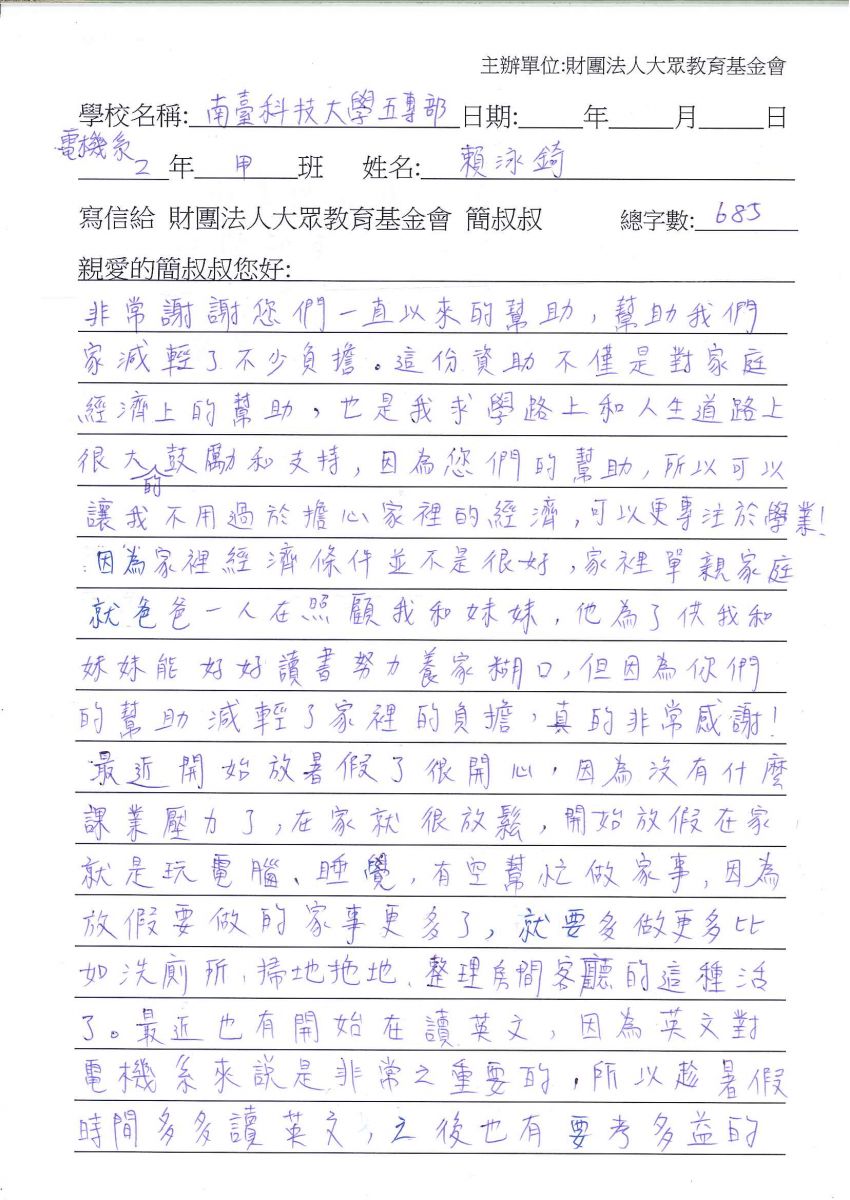 主辦單位:財團法人大眾教育基金會
學校名稱: 南臺科技大學五專部 日期: 年 月 日
電機系 2 年 甲 班 姓名: 賴泳錡
寫信給 財團法人大眾教育基金會 簡叔叔 總字數: 685
親愛的簡叔叔您好:
非常謝謝您們一直以來的幫助,幫助我們
家減輕了不少負擔。這份資助不僅是對家庭
經濟上的幫助,也是我求學路上和人生道路上
很大的鼓勵和支持,因為您們的幫助,所以可以
讓我不用過於擔心家裡的經濟,可以更專注於學業!
因為家裡經濟條件並不是很好,家裡單親家庭
就爸爸一人在照顧我和妹妹,他為了供我和
妹妹能好好讀書努力養家糊口,但因為你們
的幫助減輕了家裡的負擔,真的非常感謝!
最近開始放暑假了很開心,因為沒有什麼
課業壓力了,在家就很放鬆,開始放假在家
就是玩電腦、睡覺,有空幫忙做家事,因為
放假要做的家事更多了,就要多做更多比
如洗廁所,掃地拖地、整理房間客廳的這種活
了。最近也有開始在讀英文,因為英文對
電機系來說是非常之重要的,所以趁暑假
時間多多讀英文,之後也有要考多益的